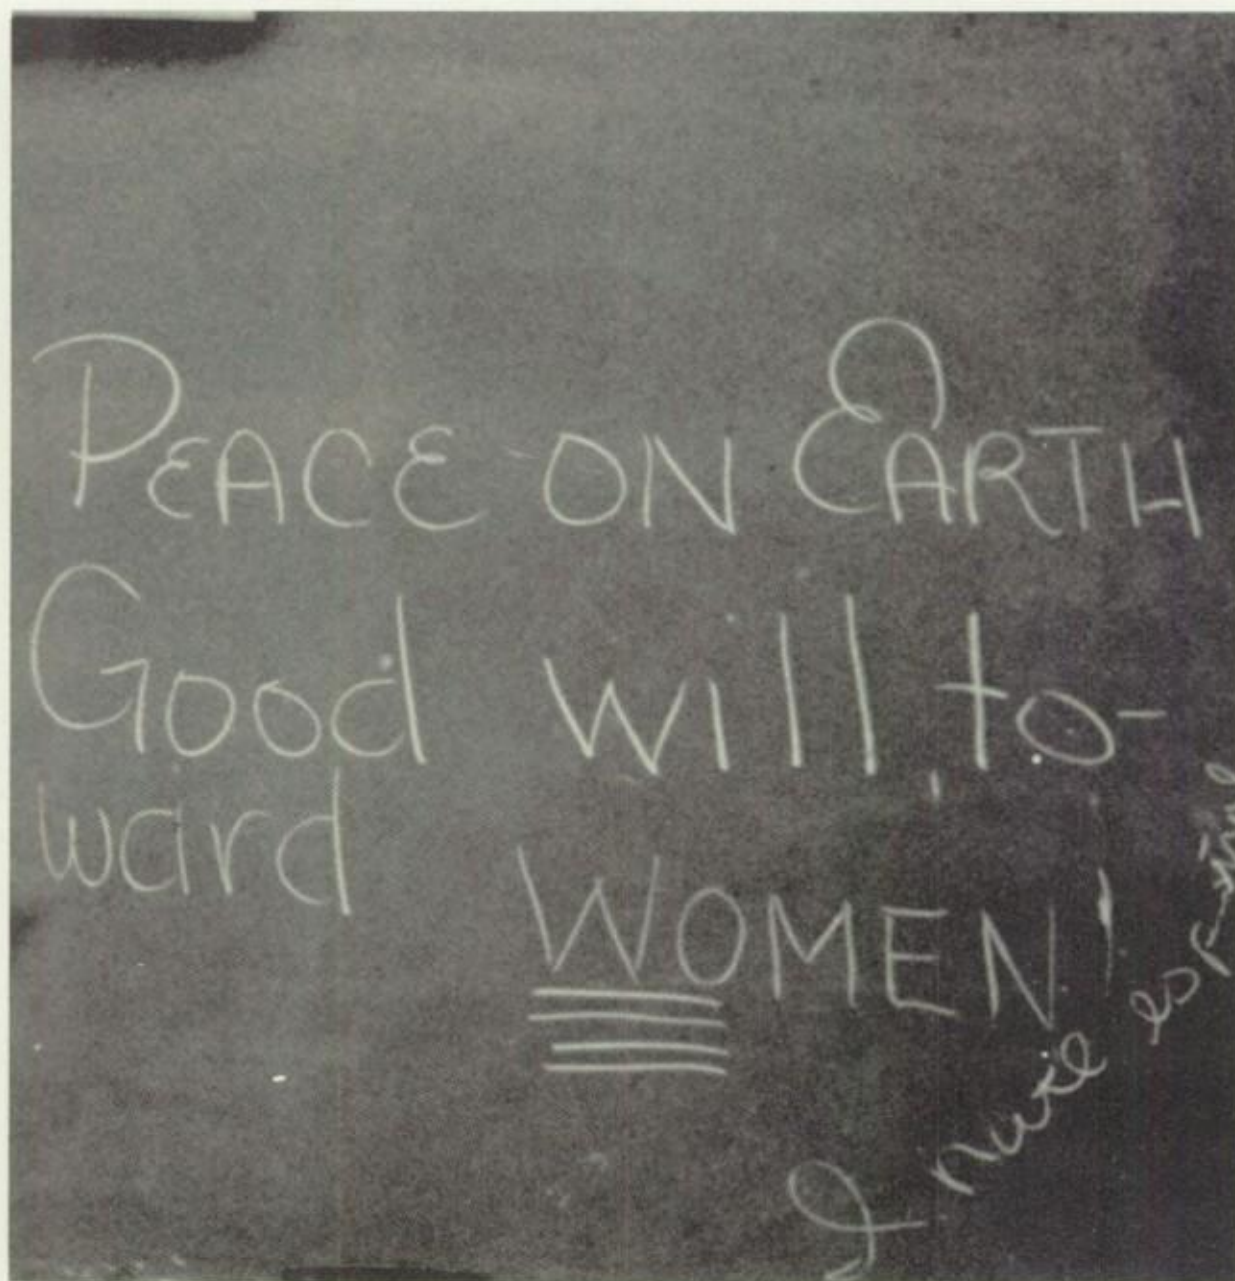 PEACE ON EARTH
Good will to-
ward
WOMEN!
I